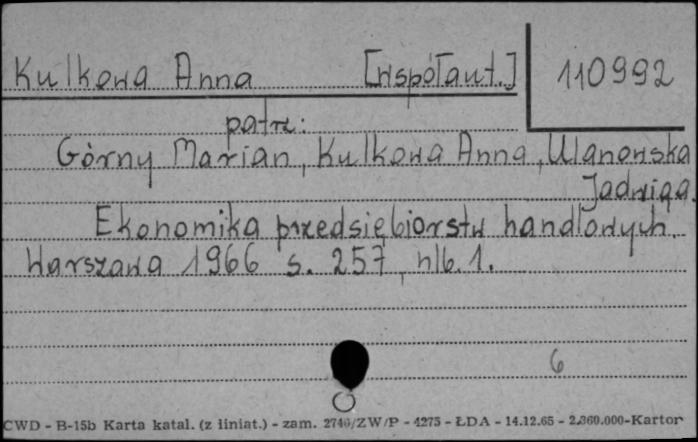 Kulkowa Anna [współaut.] 110992
patrz:
Górny Marian, Kulkowa Anna, Ulanowska
Jadwiga.
Ekonomika przedsiębiorstw handlowych.
Warszawa 1966 s. 257, nlb. 1.
6
CWD - B-15b Karta katal. (z liniat.) - zam. 2740/ZW/P - 4275 - ŁDA - 14.12.65 - 2.360.000-Karton